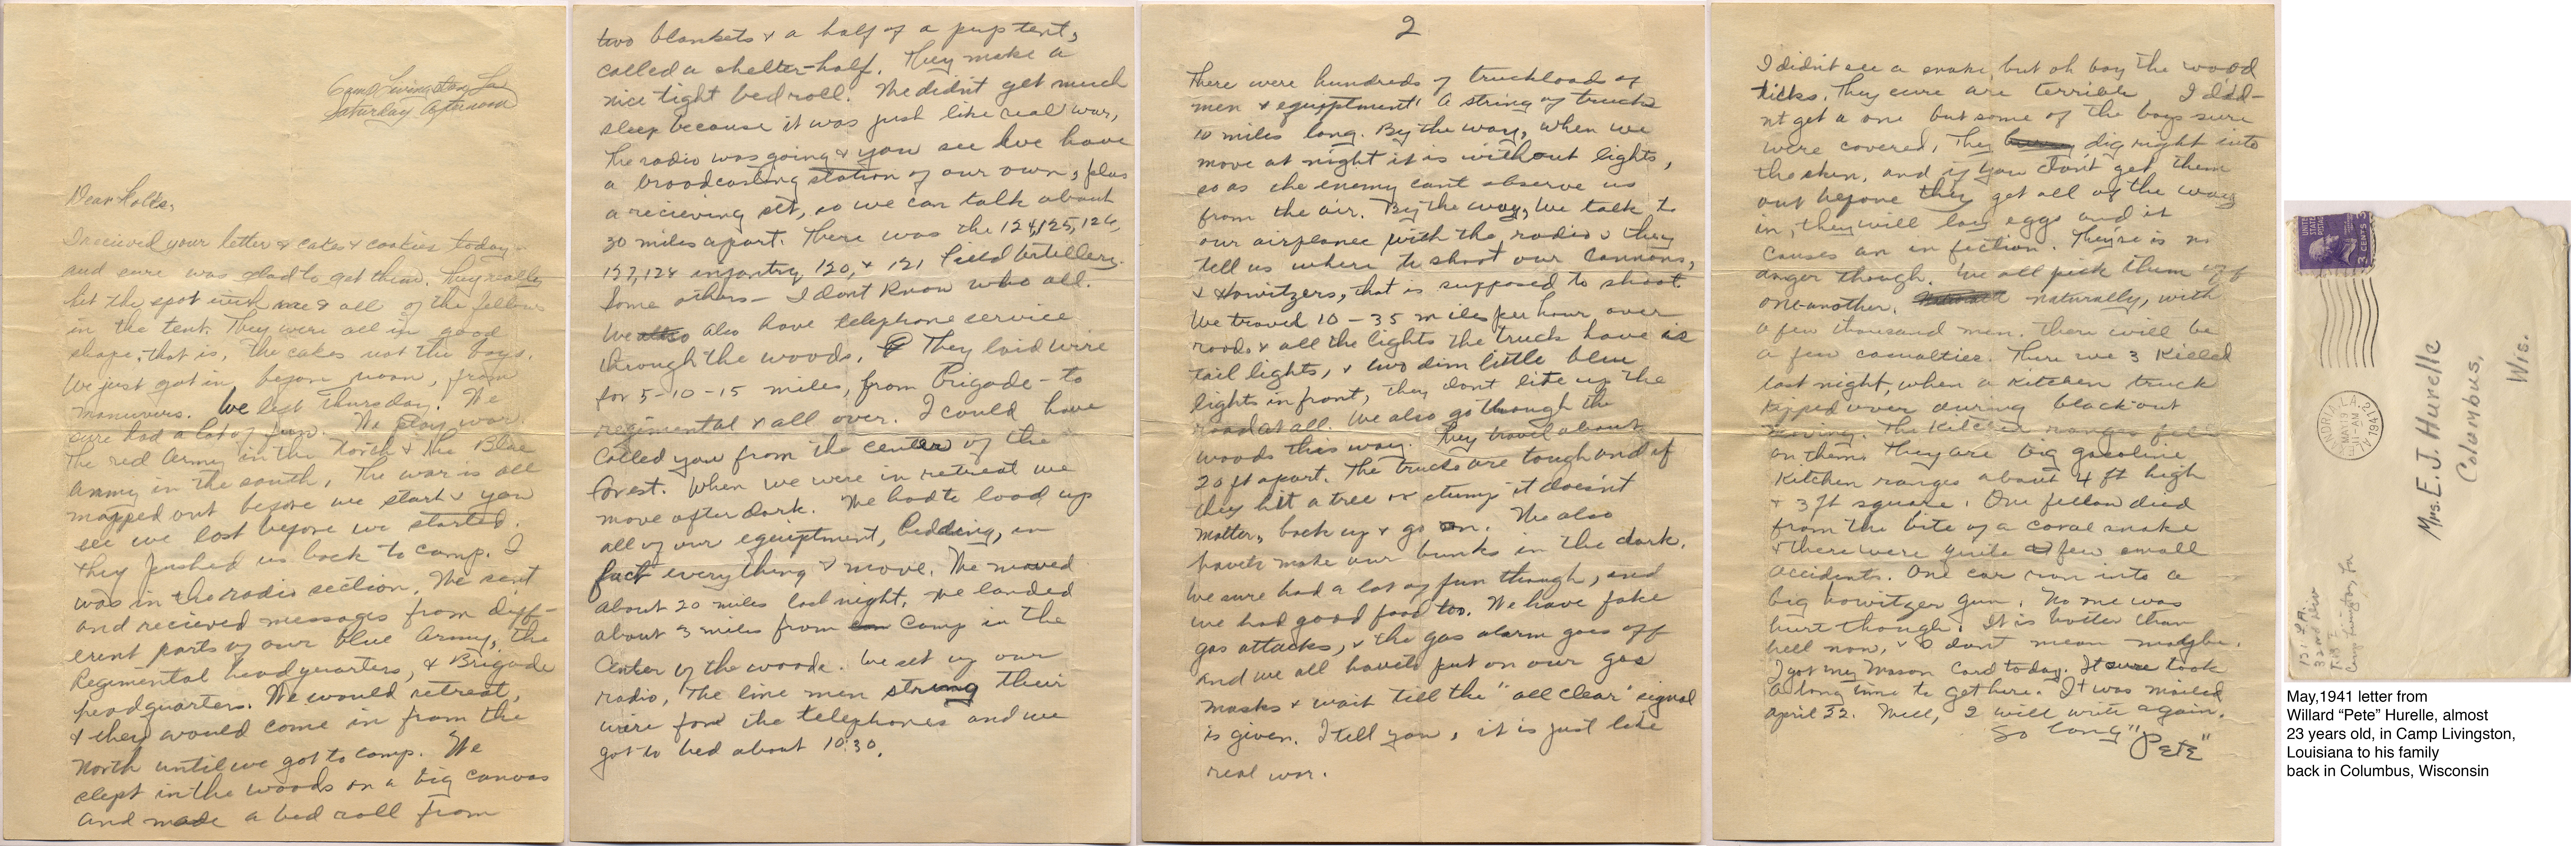 Camp Livingston, La
Saturday Afternoon
Dear Folks,
I recieved your letter & cakes & cookies today
and sure was glad to get them. They really
hit the spot with me & all of the fellows
in the tent. They were all in good
shape, that is, the cakes not the boys.
We just got in, before noon, from
manuvers. We left Thursday. We
sure had a lot of fun. We play war.
The red Army in the North & the Blue
Army in the south. The war is all
mapped out before we start & you
see we lost before we started.
They pushed us back to camp. I
was in the radio section. We sent
and recieved messages from diff-
erent parts of our blue Army, the
Regimental headquarters, & Brigade
headquarters. We would retreat,
& they would come in from the
North until we got to camp. We
slept in the woods on a big canvas
and made a bed roll from
two blankets & a half of a pup tent,
called a shelter-half. They make a
nice tight bed roll. We didn't get much
sleep because it was just like real war,
the radio was going & you see we have
a broadcasting station of our own, plus
a recieving set, so we can talk about
30 miles apart. There was the 124, 125, 126,
127, 128 infantry, 120, & 121 Field Artillery.
Some others - I dont know who all.
We also have telephone service
through the woods. They laid wire
for 5-10-15 miles, from Brigade - to
regimental & all over. I could have
called you from the center of the
forest. When we were in retreat we
move after dark. We had to load up
all of our equiptment, bedding, in
fact everything & move. We moved
about 20 miles last night. We landed
about 3 miles from camp in the
center of the woods. We set up our
radio, The line men strung their
wire for the telephones and we
got to bed about 10:30.
2
There were hundreds of truckloads of
men & equiptment! A string of trucks
10 miles long. By the way, when we
move at night it is without lights,
so as the enemy cant observe us
from the air. By the way, we talk to
our airplanes with the radio & they
tell us where to shoot our cannons,
& Howitzers, that is supposed to shoot.
We travel 10 - 35 miles per hour over
roads & all the lights the truck have is
tail lights, & two dim little blue
lights in front, they dont lite up the
road at all. We also go through the
woods this way. They travel about
20 ft apart. The trucks are tough and if
they hit a tree or stump it doesn't
matter, back up & go on. We also
havets make our bunks in the dark.
We sure had a lot of fun though, and
we had good food too. We have fake
gas attacks, & the gas alarm goes off
and we all haveto put on our gas
masks & wait till the "all clear" signal
is given. I tell you, it is just like
real war.
I didn't see a snake, but oh boy the wood
ticks. They sure are terrible I did-
nt get a one but some of the boys sure
were covered. They dig right into
the skin, and if you don't get them
out before they get all of the way
in, they will lay eggs and it
causes an in fiction. They're is no
danger though. We all pick them off
one-another. naturally, with
a few thousand men. there will be
a few casualties. There we 3 killed
last night, when a kitchen truck
tipped over during blackout
moving. The kitchen ranges fell
on them. They are big gasoline
kitchen ranges about 4 ft high
& 3 ft square. One fellow died
from the bite of a coral snake
& there were quite a few small
accidents. One car ran into a
big howitzer gun. No one was
hurt though. It is hotter than
hell now, & I dont mean maybe.
I got my Mason Card today. It sure took
a long time to get here. It was mailed
April 22. Well, I will write again.
So Long "Pete"
UNITED STATES POSTAGE
3 CENTS 3
MAY 19
11 AM
1941
LA.
Mrs. E. J. Hurelle
Columbus,
Wis.
121 F.A.
32nd Div
Camp Livingston La
May,1941 letter from
Willard “Pete” Hurelle, almost
23 years old, in Camp Livingston,
Louisiana to his family
back in Columbus, Wisconsin